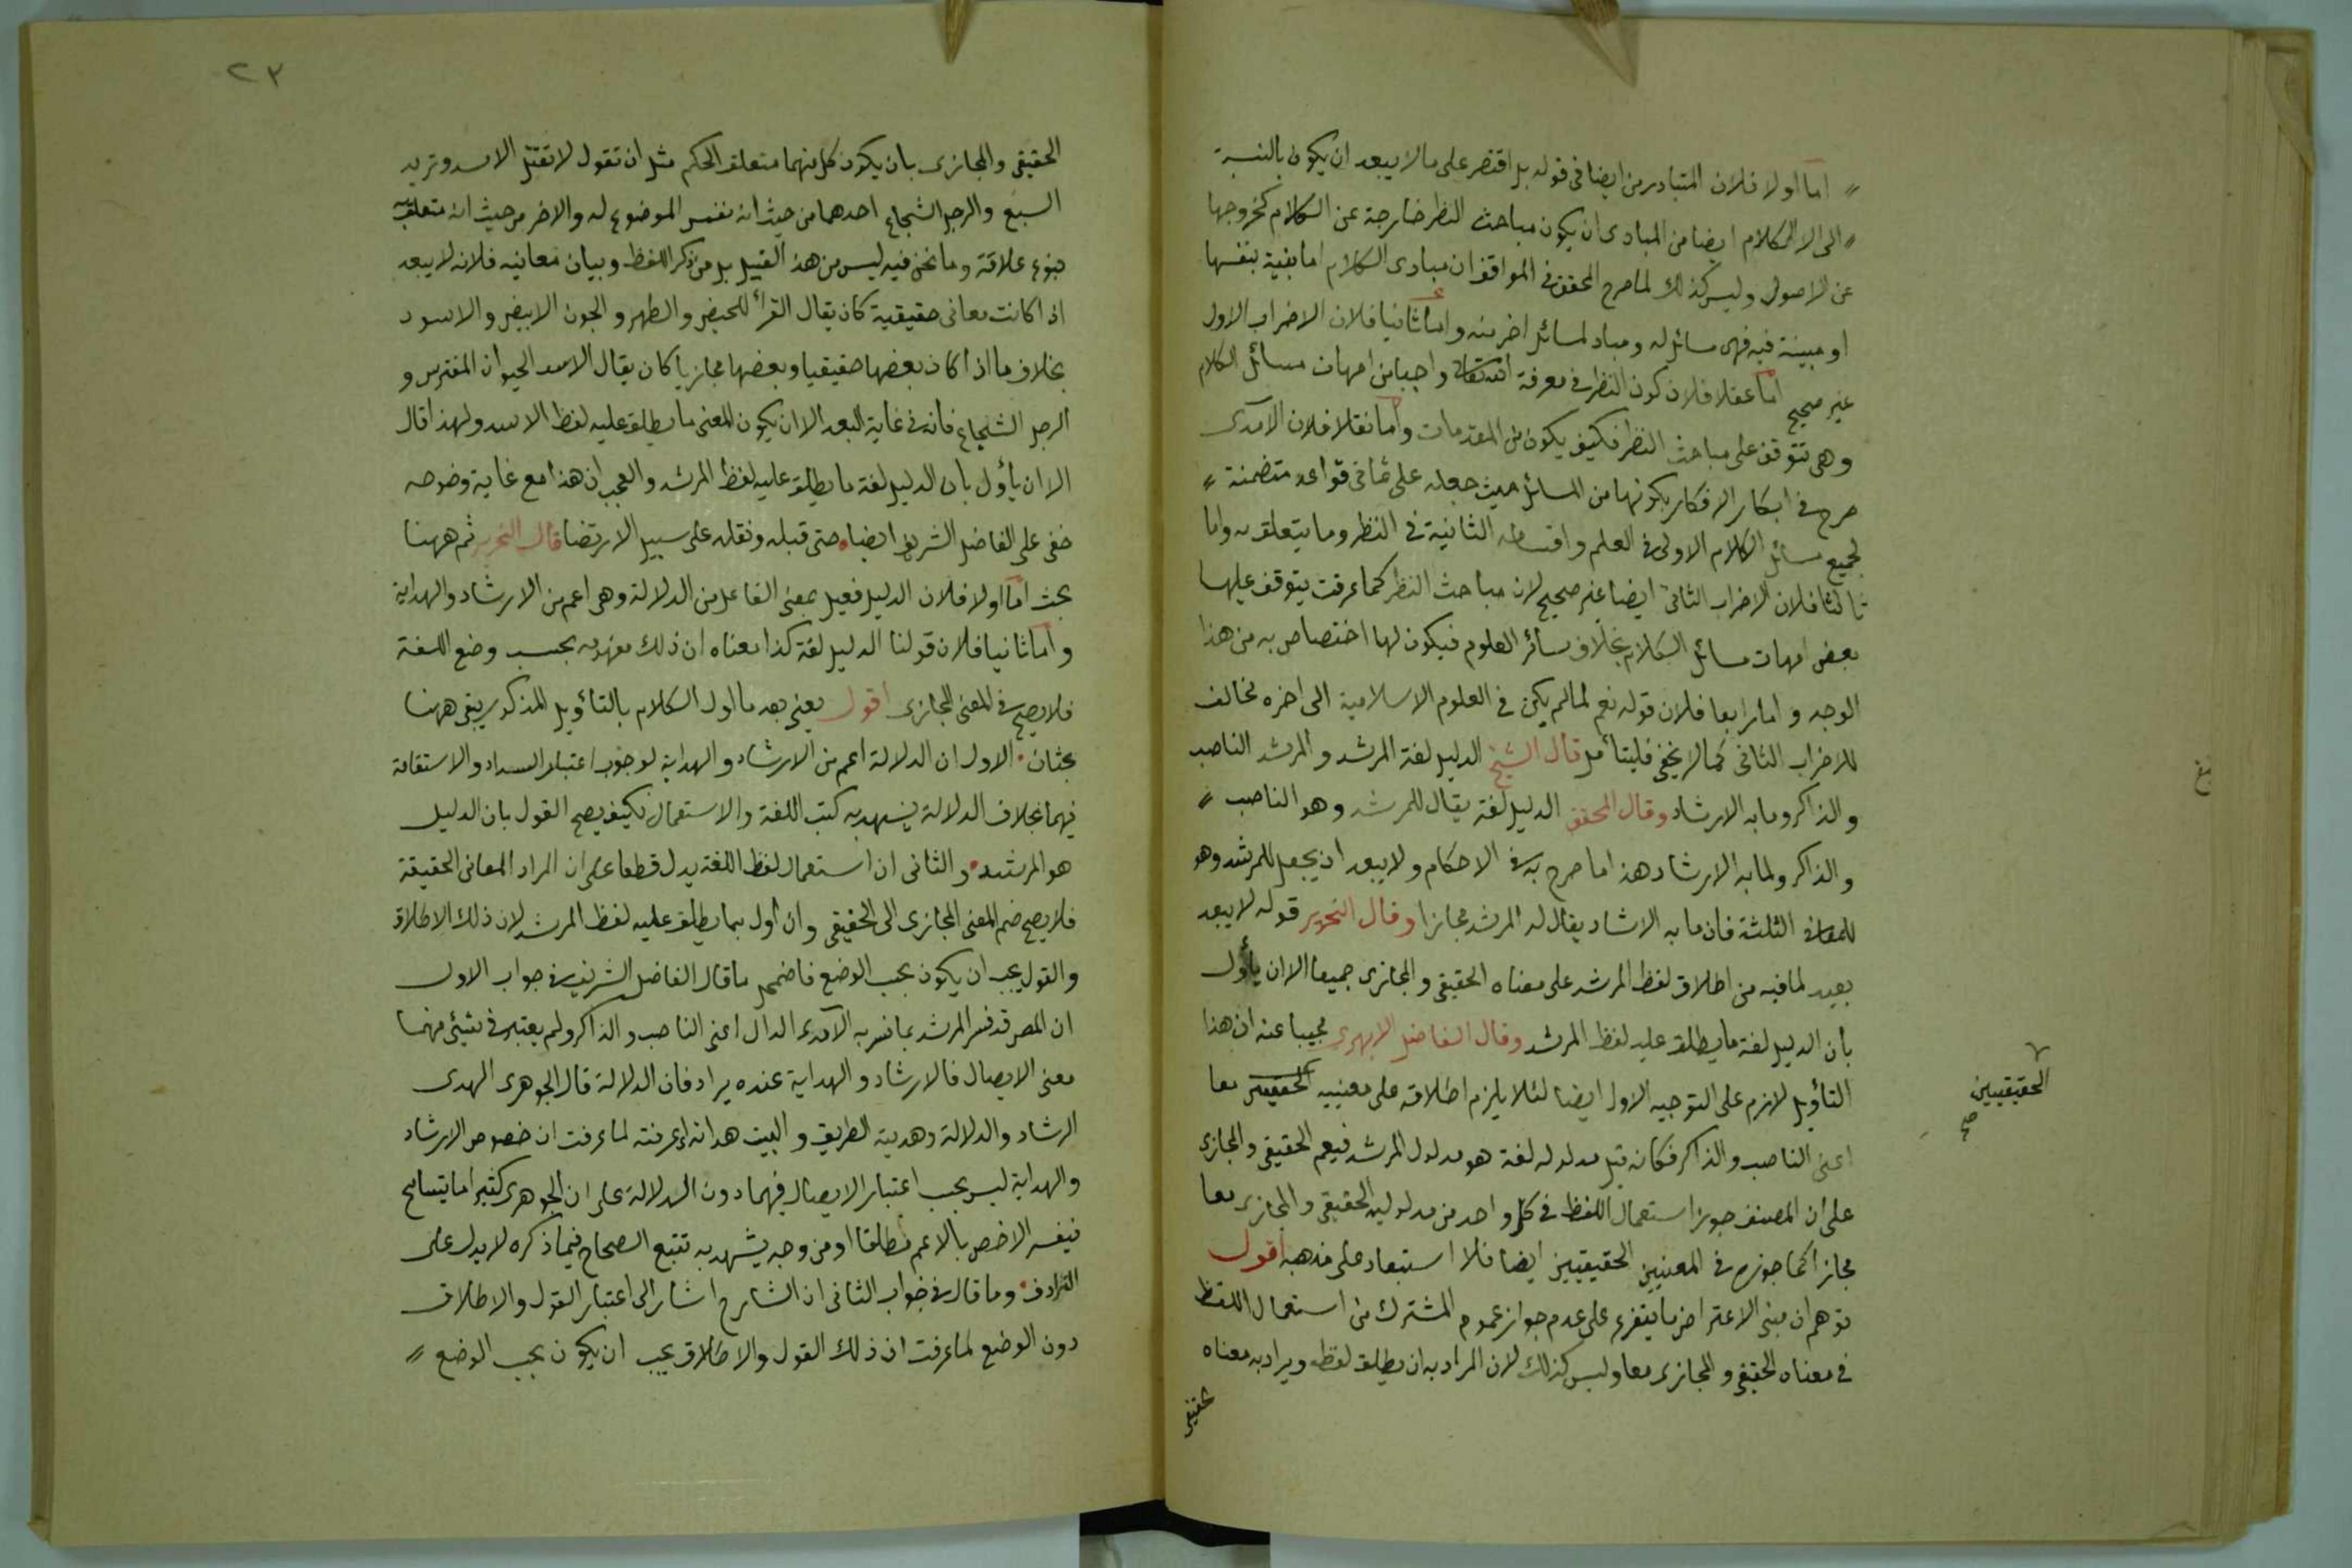 اما اولا فلان المتبادر من ايضا فى قوله بل اقتصر على ما لا يبعد ان يكون بالنسبة
الى الكلام ايضا من المبادى ان يكون مباحث النظر خارجة عن الكلام كخروجها
عن الاصول وليس كذلك لما صرح المحقق فى المواقف ان مبادى الكلام اما بينة بنفسها
او مبينة فيه فهى مسائل له ومباد لمسائل اخر منه واما ثانيا فلان الاضراب الاول
غير صحيح اما عقلا فلان كون النظر فى معرفة الله تعالى واجبا من امهات مسائل الكلام
وهى تتوقف على مباحث النظر فكيف يكون من المقدمات واما نقلا فلان الآمدى
صرح فى ابكار الافكار بكونها من المسائل حيث جعله على ثمانى قواعد متضمنة
لجميع مسائل الكلام الاولى فى العلم واقسامه الثانية فى النظر وما يتعلق به واما
ثالثا فلان الاضراب الثانى ايضا غير صحيح لان مباحث النظر كما عرفت يتوقف عليها
بعض امهات مسائل الكلام بخلاف سائر العلوم فيكون لها اختصاص به من هذا
الوجه واما رابعا فلان قوله نعم لما لم يكن فى العلوم الاسلامية الى اخره مخالف
للاضراب الثانى كما لا يخفى فليتأمل قال الشيخ الدليل لغة المرشد والمرشد الناصب
والذاكر وما به الارشاد وقال المحقق الدليل لغة يقال للمرشد وهو الناصب
والذاكر ولما به الارشاد هذا ما صرح به فى الاحكام ولا يبعد ان يجعل للمرشد وهو
للمعانى الثلثة فان ما به الارشاد يقال له المرشد مجازا وقال النحرير قوله لا يبعد
بعيد لما فيه من اطلاق لفظ المرشد على معناه الحقيقى والمجازى جميعا الا ان يأول
بان الدليل لغة ما يطلق عليه لفظ المرشد وقال الفاضل الابهرى مجيبا عنه ان هذا
التأويل لازم على التوجيه الاول ايضا لئلا يلزم اطلاقه على معنييه الحقيقيين معا
الحقيقيين
صح
اعنى الناصب والذاكر فكانه قيل مدلوله لغة هو مدلول المرشد فيعم الحقيقى والمجازى
على ان المصنف جوز استعمال اللفظ فى كل واحد من مدلوليه الحقيقى والمجازى معا
مجازا كما جوزه فى المعنيين الحقيقيين ايضا فلا استبعاد على مذهبه اقول
توهم ان مبنى الاعتراض ما يتفرع على عدم جواز عموم المشترك من استعمال اللفظ
فى معناه الحقيقى والمجازى معا وليس كذلك لان المراد به ان يطلق لفظه ويراد به معناه
الحقيقى
٢٣
الحقيقى والمجازى بان يكون كل منهما متعلق الحكم مثل ان تقول لا تقتل الاسد وتريد
السبع والرجل الشجاع احدهما من حيث انه نفس الموضوع له والاخر من حيث انه متعلق به
بنوع علاقة وما نحن فيه ليس من هذا القبيل بل من ذكر اللفظ وبيان معانيه فلانه لا يبعد
اذا كانت معانى حقيقية كان يقال القرأ للحيض والطهر والجون الابيض والاسود
بخلاف ما اذا كان بعضها حقيقيا وبعضها مجازيا كان يقال الاسد الحيوان المفترس و
الرجل الشجاع فانه فى غاية البعد الا ان يكون المعنى ما يطلق عليه لفظ الاسد ولهذا قال
الا ان يأول بان الدليل لغة ما يطلق عليه لفظ المرشد والعجب ان هذا مع غاية وضوحه
خفى على الفاضل الشريف ايضا حتى قبله ونقله على سبيل الارتضا قال النحرير ثم ههنا
بحث اما اولا فلان الدليل فعيل بمعنى الفاعل من الدلالة وهى اعم من الارشاد والهداية
واما ثانيا فلان قولنا الدليل لغة كذا معناه ان ذلك مفهومه بحسب وضع اللغة
فلا يصح فى المعنى المجازى اقول يعنى بعد ما اول الكلام بالتأويل المذكور يبقى ههنا
بحثان الاول ان الدلالة اعم من الارشاد والهداية لوجوب اعتبار السداد والاستقامة
فيهما بخلاف الدلالة يشهد به كتب اللغة والاستعمال فكيف يصح القول بان الدليل
هو المرشد والثانى ان استعمال لفظ اللغة يدل قطعا على ان المراد المعانى الحقيقة
فلا يصح ضم المعنى المجازى الى الحقيقى وان اول بما يطلق عليه لفظ المرشد لان ذلك الاطلاق
والقول يجب ان يكون بحسب الوضع فاضمحل ما قال الفاضل الشريف فى جواب الاول
ان المصر قد فسر المرشد بما فسر به الآمدى الدال اعنى الناصب والذاكر ولم يعتبر فى شيئ منهما
معنى الايصال فالارشاد والهداية عنده يرادفان الدلالة قال الجوهرى الهدى
الرشاد والدلالة وهديته الطريق والبيت هداية اى عرفته لما عرفت ان خصوص الارشاد
والهداية ليس بحسب اعتبار الايصال فيهما دون الدلالة على ان الجوهرى كثيرا ما يتسامح
فيفسر الاخص بالاعم مطلقا او من وجه يشهد به تتبع الصحاح فيما ذكره لا يدل على
الترادف وما قال فى جواب الثانى ان الشارح اشار الى اعتبار القول والاطلاق
دون الوضع لما عرفت ان ذلك القول والاطلاق يجب ان يكون بحسب الوضع